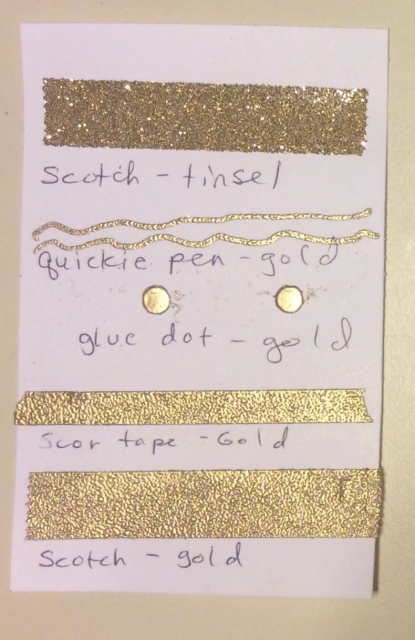 Scotch - tinsel
quickie pen - gold
glue dot - gold
Scor tape - Gold
Scotch - gold